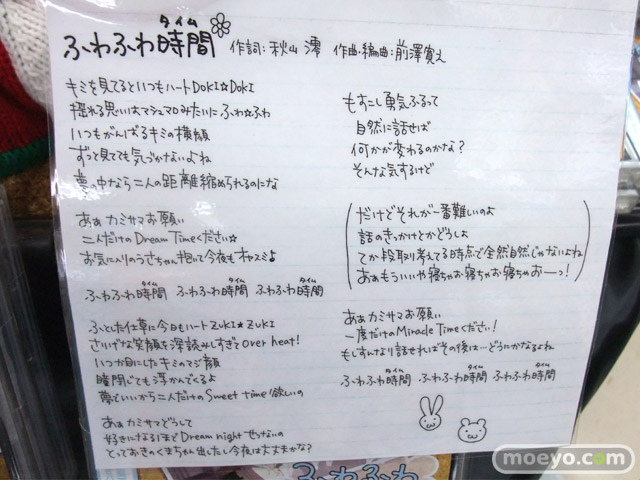 ふわふわ時間
タイム
作詞:秋山 澪 作曲・編曲:前澤寛之
キミを見てるといつもハートDOKI☆DOKI
揺れる思いはマシュマロみたいにふわ☆ふわ
いつもがんばるキミの横顔
ずっと見てても気づかないよね
夢の中なら二人の距離縮められるのにな
あぁ カミサマお願い
二人だけのDream Timeください☆
お気に入りのうさちゃん抱いて今夜もオヤスミ♪
ふわふわ時間 ふわふわ時間 ふわふわ時間
タイム タイム タイム
ふとした仕草に今日もハートZUKI★ZUKI
さりげな笑顔を深読みしすぎてover heat!
いつか目にしたキミのマジ顔
瞳閉じても浮かんでくるよ
夢でいいから二人だけのSweet time欲しいの
あぁ カミサマどうして
好きになるほどDream nightせつないの
とっておきのくまちゃん出したし今夜は大丈夫かな?
もすこし勇気ふるって
自然に話せば
何かが変わるのかな?
そんな気するけど
(だけどそれが一番難しいのよ
話のきっかけとかどうしよ
てか段取り考えてる時点で全然自然じゃないよね
あぁもういいや寝ちゃお寝ちゃお寝ちゃおーっ!)
あぁ カミサマお願い
一度だけのMiracle Timeください!
もしすんなり話せればその後は…どうにかなるよね
ふわふわ時間 ふわふわ時間 ふわふわ時間
タイム タイム タイム
ふわふわ
moeyo.com